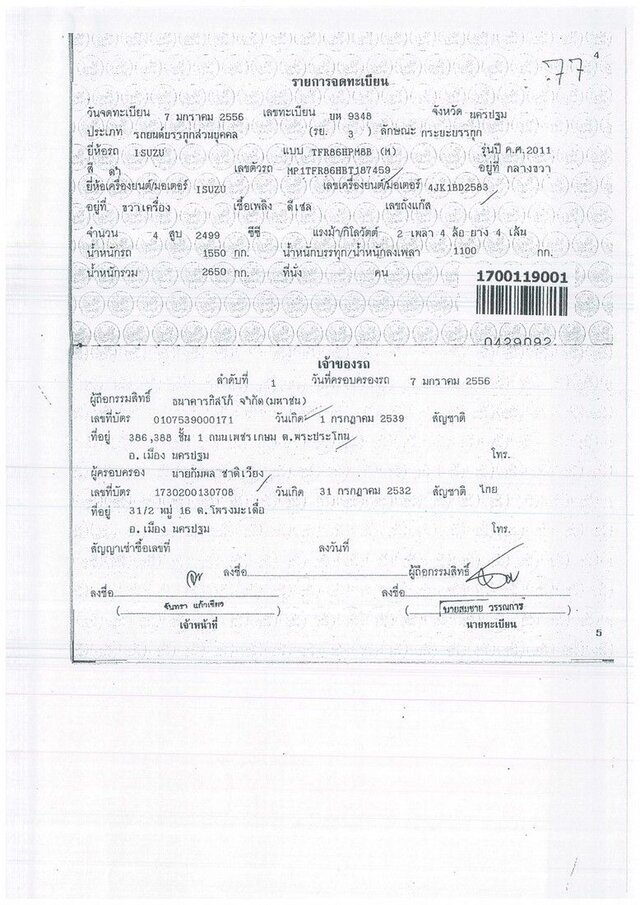 4
77
รายการจดทะเบียน
วันจดทะเบียน 7 มกราคม 2556 เลขทะเบียน บห 9348 จังหวัด นครปฐม
ประเภท รถยนต์บรรทุกส่วนบุคคล (รย. 3 ) ลักษณะ กระบะบรรทุก
ยี่ห้อรถ ISUZU แบบ TFR86HPM8B (M) รุ่นปี ค.ศ.2011
สี ดำ เลขตัวรถ MP1TFR86HBT187459 อยู่ที่ กลางขวา
ยี่ห้อเครื่องยนต์/มอเตอร์ ISUZU เลขเครื่องยนต์/มอเตอร์ 4JK1BD2583
อยู่ที่ ขวาเครื่อง เชื้อเพลิง ดีเซล เลขถังแก๊ส
จำนวน 4 สูบ 2499 ซีซี แรงม้า/กิโลวัตต์ 2 เพลา 4 ล้อ ยาง 4 เส้น
น้ำหนักรถ 1550 กก. น้ำหนักบรรทุก/น้ำหนักลงเพลา 1100 กก.
น้ำหนักรวม 2650 กก. ที่นั่ง คน
1700119001
0429092
เจ้าของรถ
ลำดับที่ 1 วันที่ครอบครองรถ 7 มกราคม 2556
ผู้ถือกรรมสิทธิ์ ธนาคารทิสโก้ จำกัด(มหาชน)
เลขที่บัตร 0107539000171 วันเกิด 1 กรกฎาคม 2539 สัญชาติ
ที่อยู่ 386,388 ชั้น 1 ถนนเพชรเกษม ต.พระประโทน
อ.เมือง นครปฐม โทร.
ผู้ครอบครอง นายกัมพล ชาติเวียง
เลขที่บัตร 1730200130708 วันเกิด 31 กรกฎาคม 2532 สัญชาติ ไทย
ที่อยู่ 31/2 หมู่ 16 ต.โพรงมะเดื่อ
อ.เมือง นครปฐม โทร.
สัญญาเช่าซื้อเลขที่ ลงวันที่
ลงชื่อ ผู้ถือกรรมสิทธิ์
ลงชื่อ ลงชื่อ
(จันทรา แก้วเขียว) (นายสมชาย วรรณการ)
เจ้าหน้าที่ นายทะเบียน
5